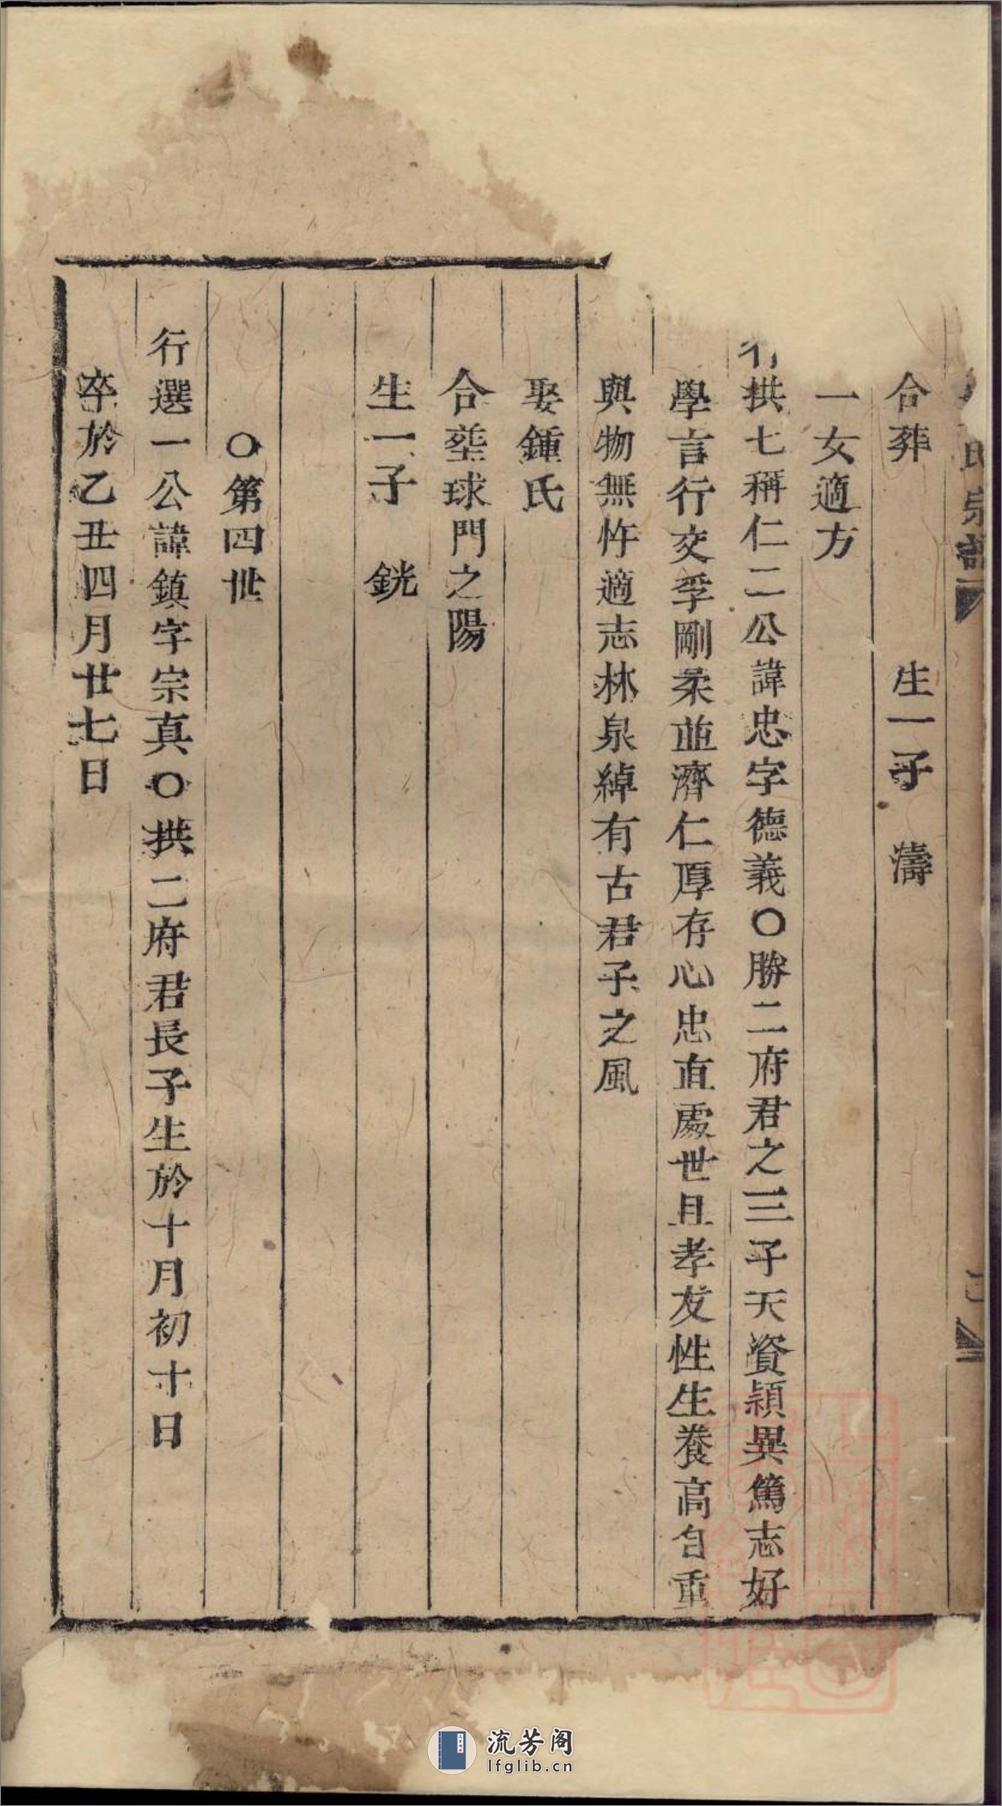 氏宗譜
合葬　生一子　濤
一女適方
行拱七稱仁二公諱忠字德義〇勝二府君之三子天資穎異篤志好
學言行交孚剛柔並濟仁厚存心忠直處世且孝友性生養高自重
與物無忤適志林泉綽有古君子之風
娶鍾氏
合塟球門之陽
生一子　銧
〇第四世
行選一公諱鎮字宗真〇拱二府君長子生於十月初十日
卒於乙丑四月廿七日
流芳阁
lfglib.cn